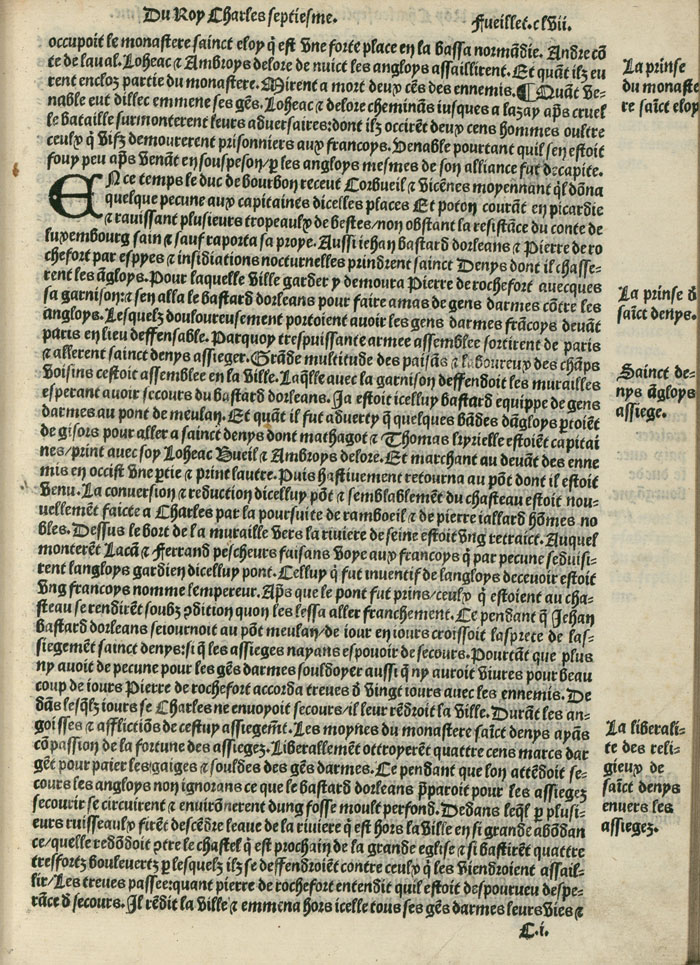 Du Roy Charles septiesme.
Fueillet.clvii.
occupoit le monastere sainct eloy q̃ est vne forte place en la bassa normãdie. Andre cõ
te de laual. Loheac ⁊ Ambroys delore de nuict les angloys assaillirent. Et quãt ilz eu
rent encloz partie du monastere. Mirent a mort deux cẽs des ennemis. ¶ Quãt ve-
nable eut dillec emmene ses gẽs. Loheac ⁊ delore cheminãs iusques a lazay ap̃s cruel
le bataille surmonterent leurs aduersaires: dont ilz occirẽt deux cens hommes oultre
ceulx q̃ vifz demourerent prisonniers aux francoys. Venable pourtant quil sen estoit
fouy peu ap̃s venãt en souspeson/ p̱ les angloys mesmes de son alliance fut decapite.
EN ce temps le duc de bourbon receut Corbueil ⁊ vicẽnes moyennant q̃l dõna
quelque pecune aux capitaines dicelles places Et poton courãt en picardie
⁊ rauissant plusieurs tropeaulx de bestes/ non obstant la resistãce du conte de
luxembourg sain ⁊ sauf raporta sa proye. Aussi iehan bastard dorleans ⁊ Pierre de ro
chefort par espyes ⁊ insidiations nocturnelles prindrent sainct Denys dont il chasse-
rent les ãgloys. Pour laquelle ville garder y demoura Pierre de rochefort auecques
sa garnison: ⁊ sen alla le bastard dorleans pour faire amas de gens darmes cõtre les
angloys. Lesquelz douloureusement portoient auoir les gens darmes frãcoys deuãt
paris en lieu deffensable. Parquoy trespuissante armee assemblee sortirent de paris
⁊ allerent sainct denys assieger. Grãde multitude des paisãs ⁊ laboureux des chãps
voisins cestoit assemblee en la ville. Laq̃lle auec la garnison deffendoit les murailles
esperant auoir secours du bastard dorleans. Ja estoit icelluy bastard equippe de gens
darmes au pont de meulan. Et quãt il fut aduerty q̃ quelques bãdes dãgloys p̱toiẽt
de gisors pour aller a sainct denys dont mathagot ⁊ Thomas lyrielle estoiẽt capitai
nes/ print auec soy Loheac Bueil ⁊ Ambroys delore. Et marchant au deuãt des enne
mis en occist vne p̱tie ⁊ print lautre. Puis hastiuement retourna au põt dont il estoit
venu. La conuersion ⁊ reduction dicelluy põt ⁊ semblablemẽt du chasteau estoit nou-
uellemẽt faicte a Charles par la poursuite de ramboeil ⁊ de pierre iallard hõmes no
bles. Dessus le bort de la muraille vers la riuiere de seine estoit vng retraict. Auquel
monterẽt Lacã ⁊ Ferrand pescheurs faisans voye aux francoys q̃ par pecune seduisi-
rent langloys gardien dicelluy pont. Celluy q̃ fut inuentif de langloys deceuoir estoit
vng francoys nomme lempereur. Ap̃s que le pont fut prins/ ceulx q̃ estoient au cha-
steau se rendirẽt soubz ꝯdition quon les lessa aller franchement. Ce pendant q̃ Jehan
bastard dorleans seiournoit au põt meulan/ de iour en iours croissoit lasprete de las-
siegement sainct denys: si q̃ les assieges nayans espouoir de secours. Pourtãt que plus
ny auoit de pecune pour les gẽs darmes souldoyer aussi q̃ ny auroit viures pour beau
coup de iours Pierre de rochefort accorda treues d̃ vingt iours auec les ennemis. De
dãs lesq̃lz iours se Charles ne enuoyoit secours/ il leur rẽdroit la ville. Durãt les an-
goisses ⁊ afflictiõs de cestuy assiegem̃t. Les moynes du monastere saĩct denys ayãs
cõpassion de la fortune des assiegez. Liberallemẽt ottroyerẽt quattre cens marcs dar
gẽt pour paier les gaiges ⁊ souldes des gẽs darmes. Ce pendant que lon attẽdoit se-
cours les angloys non ignorans ce que le bastard dorleans p̃paroit pour les assiegez
secourir se circuirent ⁊ enuirõnerent dung fosse moult perfond. Dedans leq̃l p̱ plusi-
eurs ruisseaulx firẽt descẽdre leaue de la riuiere q̃ est hors la ville en si grande abõdan
ce/ quelle redõdoit ꝯtre le chastel q̃ est prochain de la grande eglise ⁊ si bastirẽt quattre
tresfortz bouleuertz p̱ lesquelz ilz se deffendroiẽt contre ceulx q̃ les viendroient assail-
lir/ Les treues passee: quant pierre de rochefort entendit quil estoit despourueu despe-
rãce d̃ secours. Il rẽdit la ville ⁊ emmena hors icelle tous ses gẽs darmes leurs vies ⁊
C.i.
La prinse
du monaste
re saĩct eloy
La prinse d̃
saĩct denys.
Sainct de-
nys ãgloys
assiege.
La liberali-
te des reli-
gieux de
saĩct denys
enuers les
assiegez.